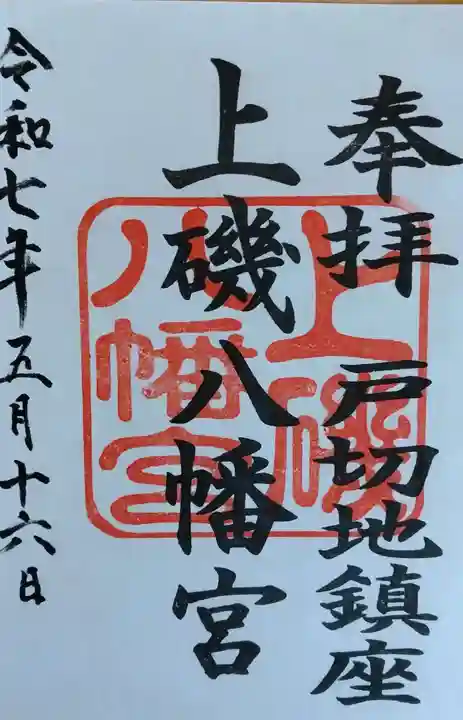 奉拝 戸切地鎮座
上磯八幡宮
令和七年五月十六日
上磯
八幡宮